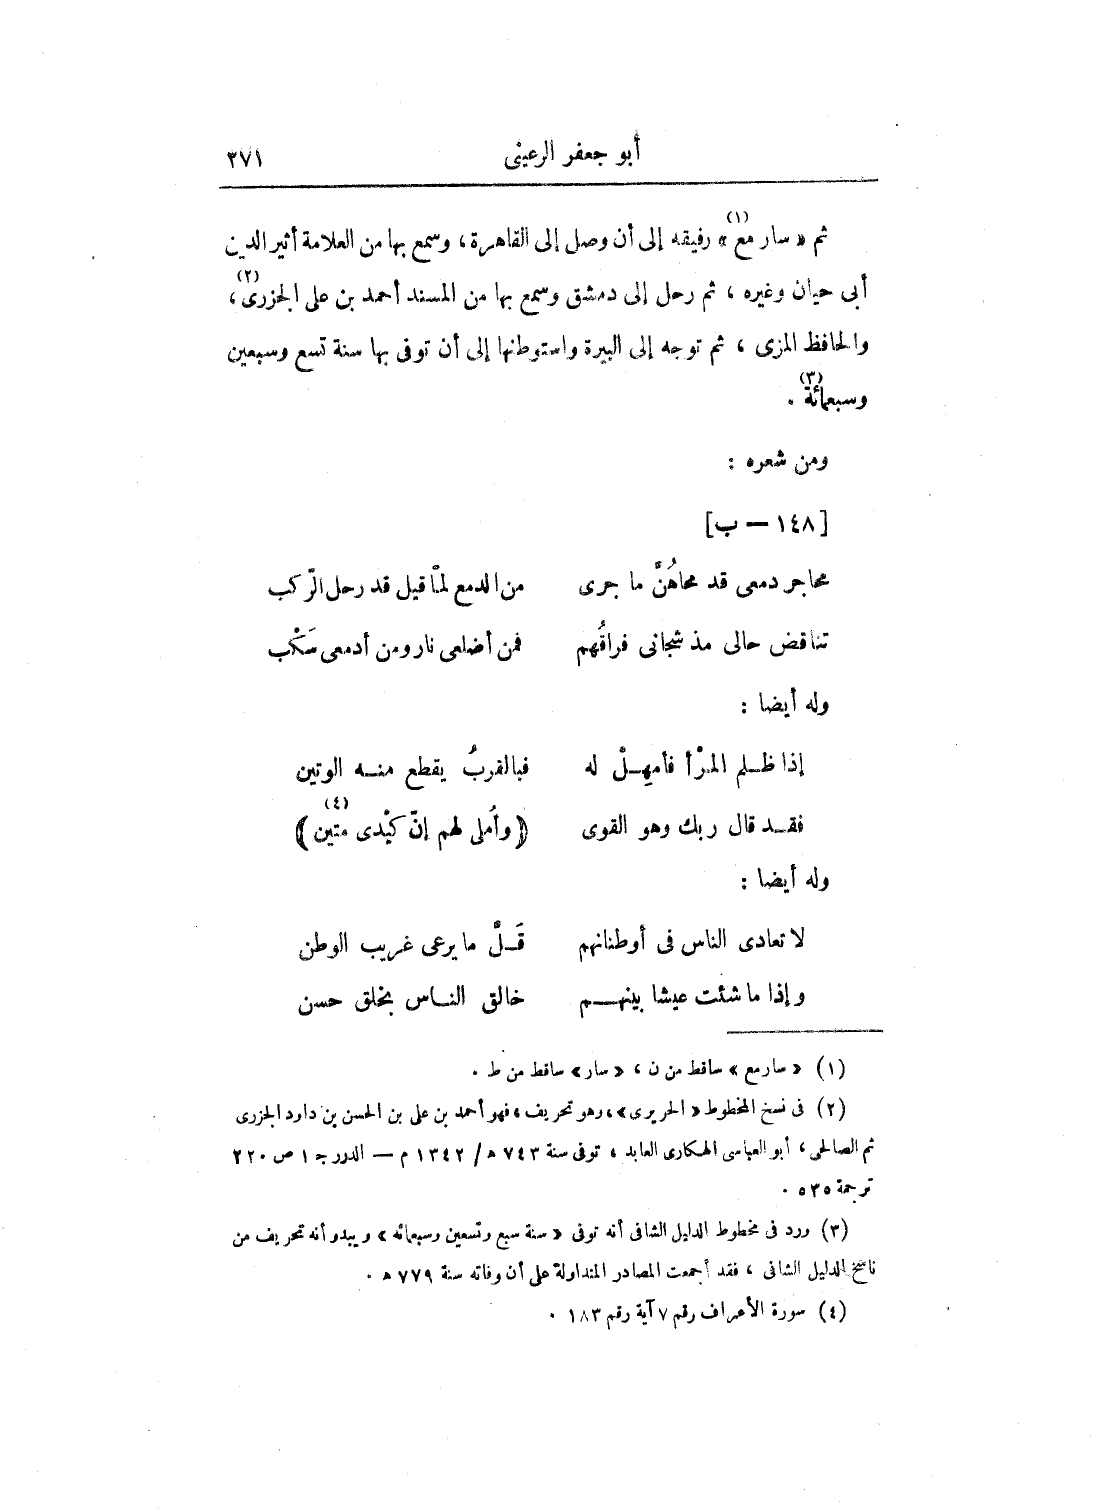 أبو جعفر الرعينى ٢٧١
ثم « سار مع(١) » رفيقه إلى أن وصل إلى القاهرة ، وسمع بها من العلامة أثير الدين
أبى حيان وغيره ، ثم رحل إلى دمشق وسمع بها من المسند أحمد بن على الجزرى(٢) ،
والحافظ المزى ، ثم توجه إلى البيرة واستوطنها إلى أن توفى بها سنة تسع وسبعين
وسبعمائة(٣) .
ومن شعره :
[١٤٨ — ب]
محاجر دمعى قد محاهُنَّ ما جرى من الدمع لمّا قيل قد رحل الرّكب
تناقض حالى مذ شجانى فراقُهم فمن أضلعى نار ومن أدمعى سَكْب
وله أيضا :
إذا ظلم المرْأ فأمهِلْ له فبالقربُ يقطع منه الوتين
فقد قال ربك وهو القوى (( وأُملى لهم إنّ كيْدى متين(٤) ))
وله أيضا :
لا تعادى الناس فى أوطنانهم قَلَّ ما يرعى غريب الوطن
وإذا ما شئت عيشا بينهم خالق الناس بخلق حسن
(١) « سار مع » ساقط من ن ، « سار » ساقط من ط .
(٢) فى نسخ المخطوط « الحريرى » ، وهو تحريف ، فهو أحمد بن على بن الحسن بن داود الجزرى
ثم الصالحى ، أبو العباسى الهكارى العابد ، توفى سنة ٧٤٣ ه / ١٣٤٢ م — الدرر ج ١ ص ٢٢٠
ترجمة ٥٣٥ .
(٣) ورد فى مخطوط الدليل الشافى أنه توفى « سنة سبع وتسعين وسبعمائه » ويبدو أنه تحريف من
ناسخ الدليل الشافى ، فقد أجمعت المصادر المتداولة على أن وفاته سنة ٧٧٩ ه .
(٤) سورة الأعراف رقم ٧ آية رقم ١٨٣ .